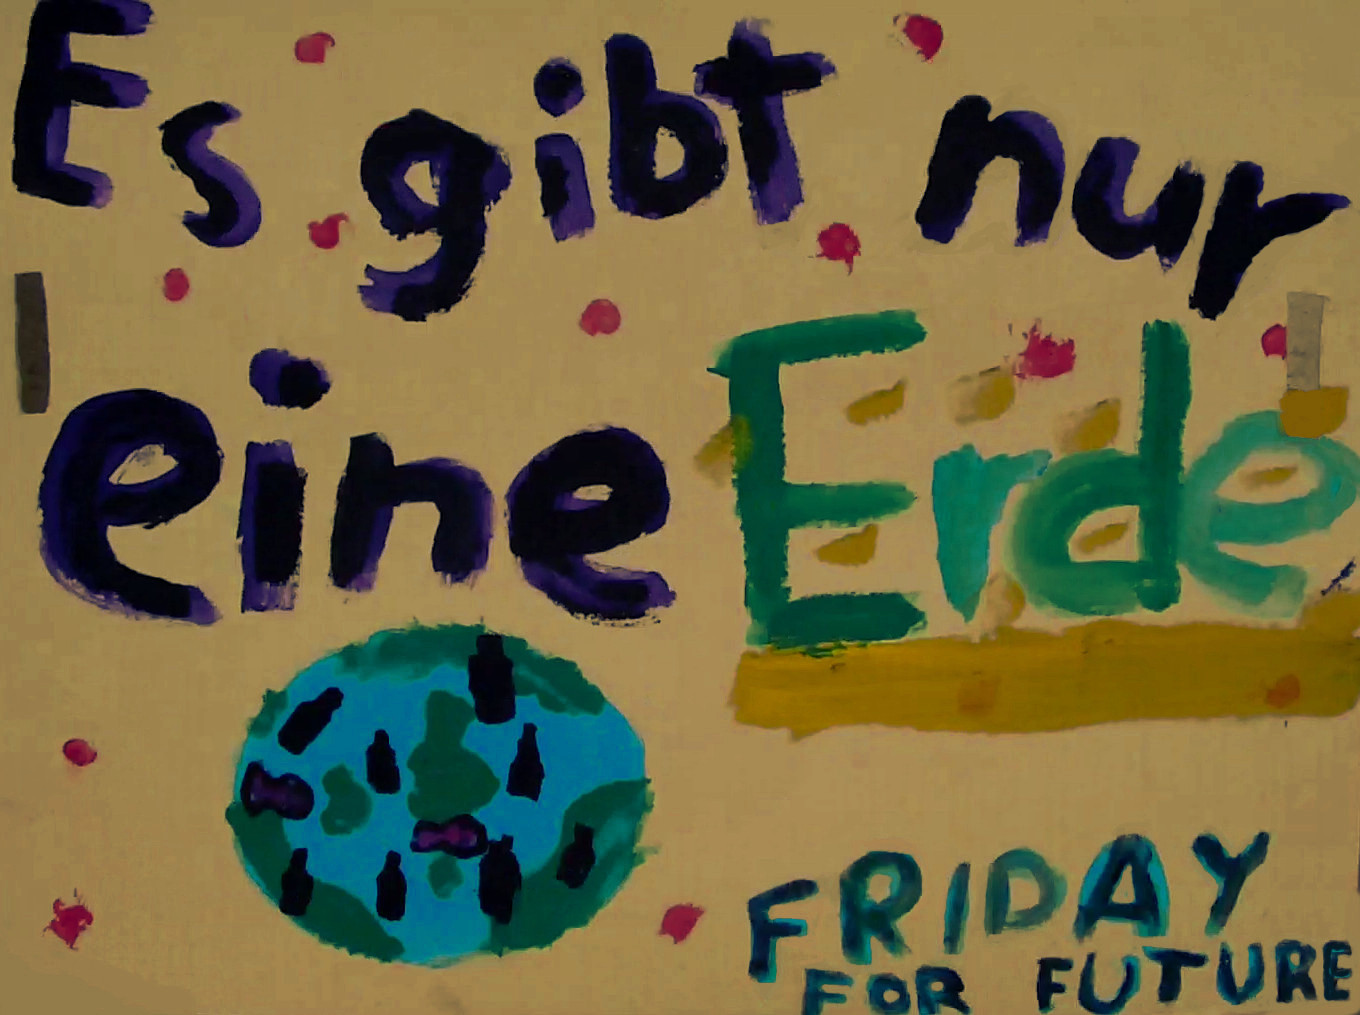 Es gibt nur
eine Erde
FRIDAY
FOR FUTURE